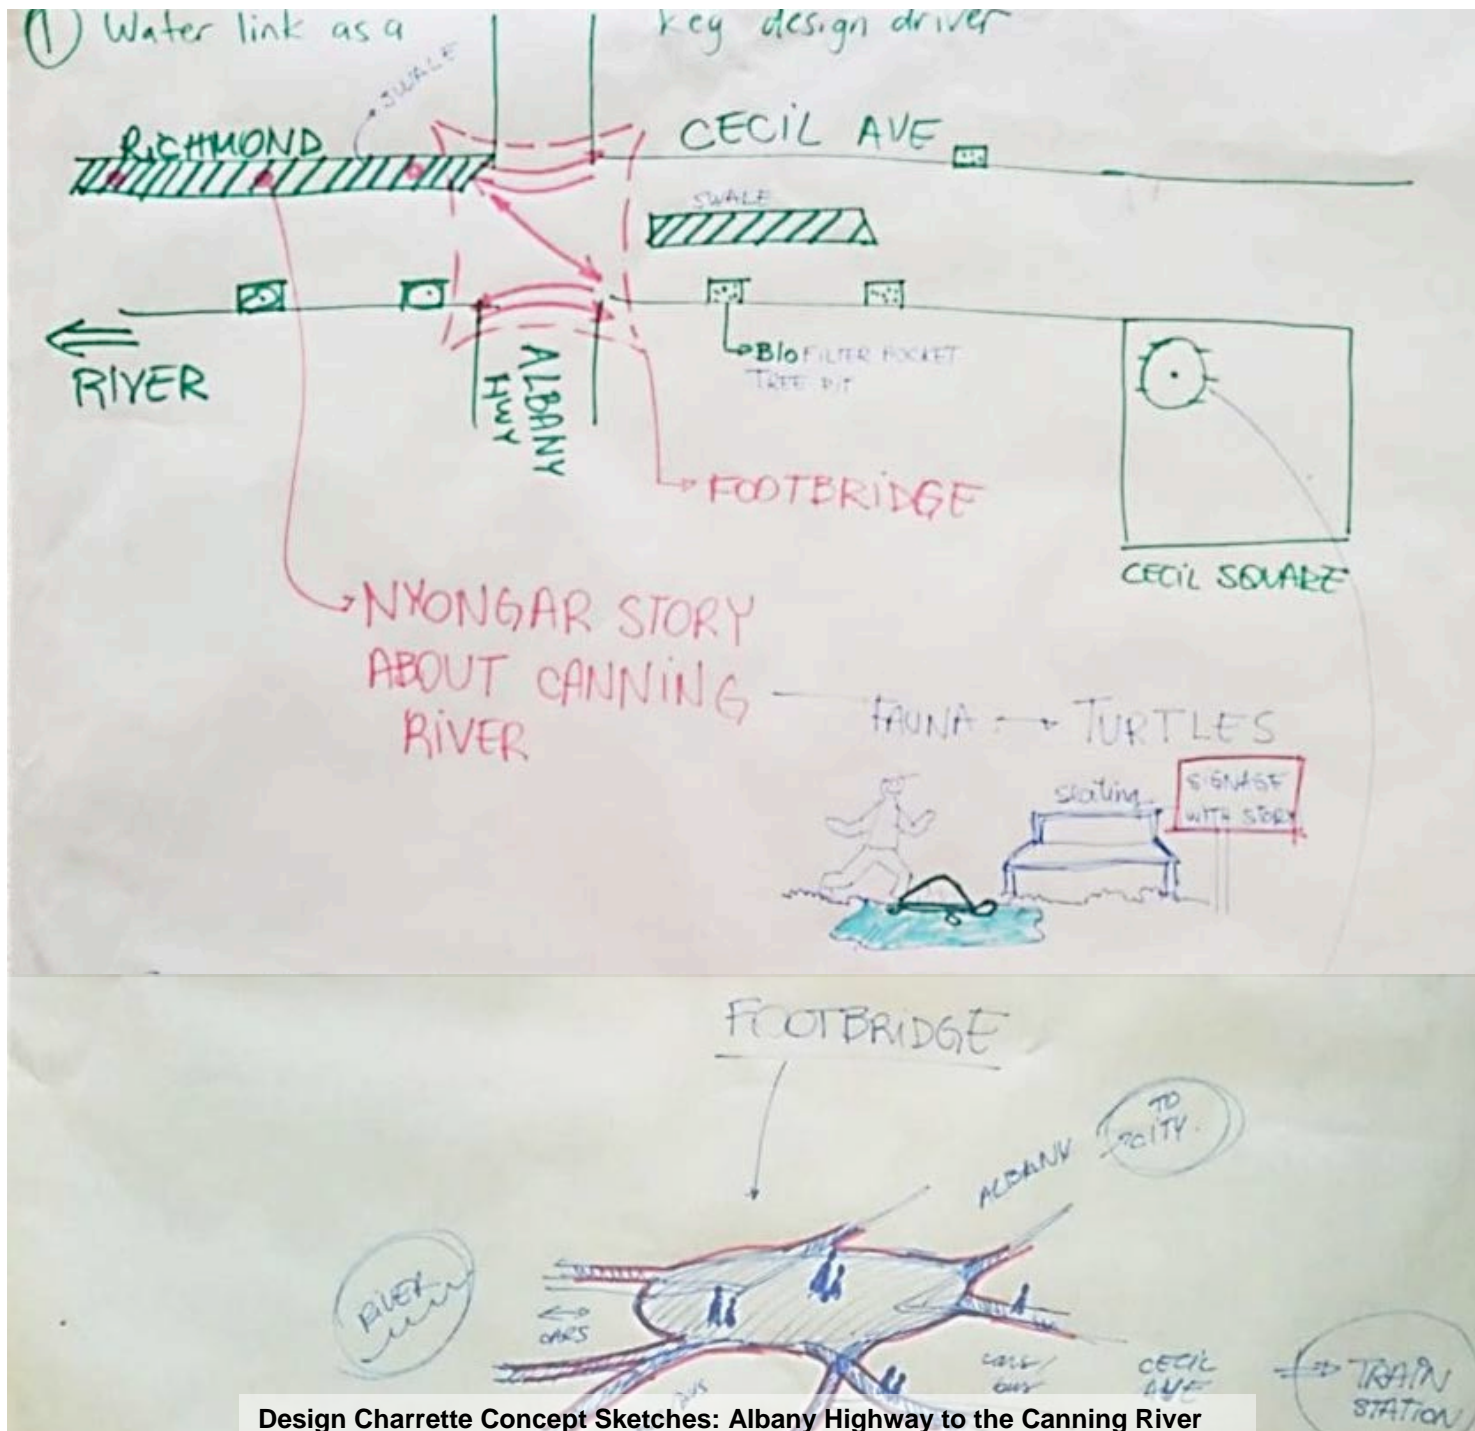 ① Water link as a key design driver
SWALE
RICHMOND
CECIL AVE
SWALE
RIVER
ALBANY
HWY
BIO FILTER POCKET
TREE PIT
FOOTBRIDGE
CECIL SQUARE
NYONGAR STORY
ABOUT CANNING
RIVER
FAUNA → TURTLES
seating
SIGNAGE
WITH STORY
FOOTBRIDGE
ALBANY
TO
CITY
RIVER
CARS
CARS/
BUS
BUS
CECIL
AVE
TRAIN
STATION
Design Charrette Concept Sketches: Albany Highway to the Canning River